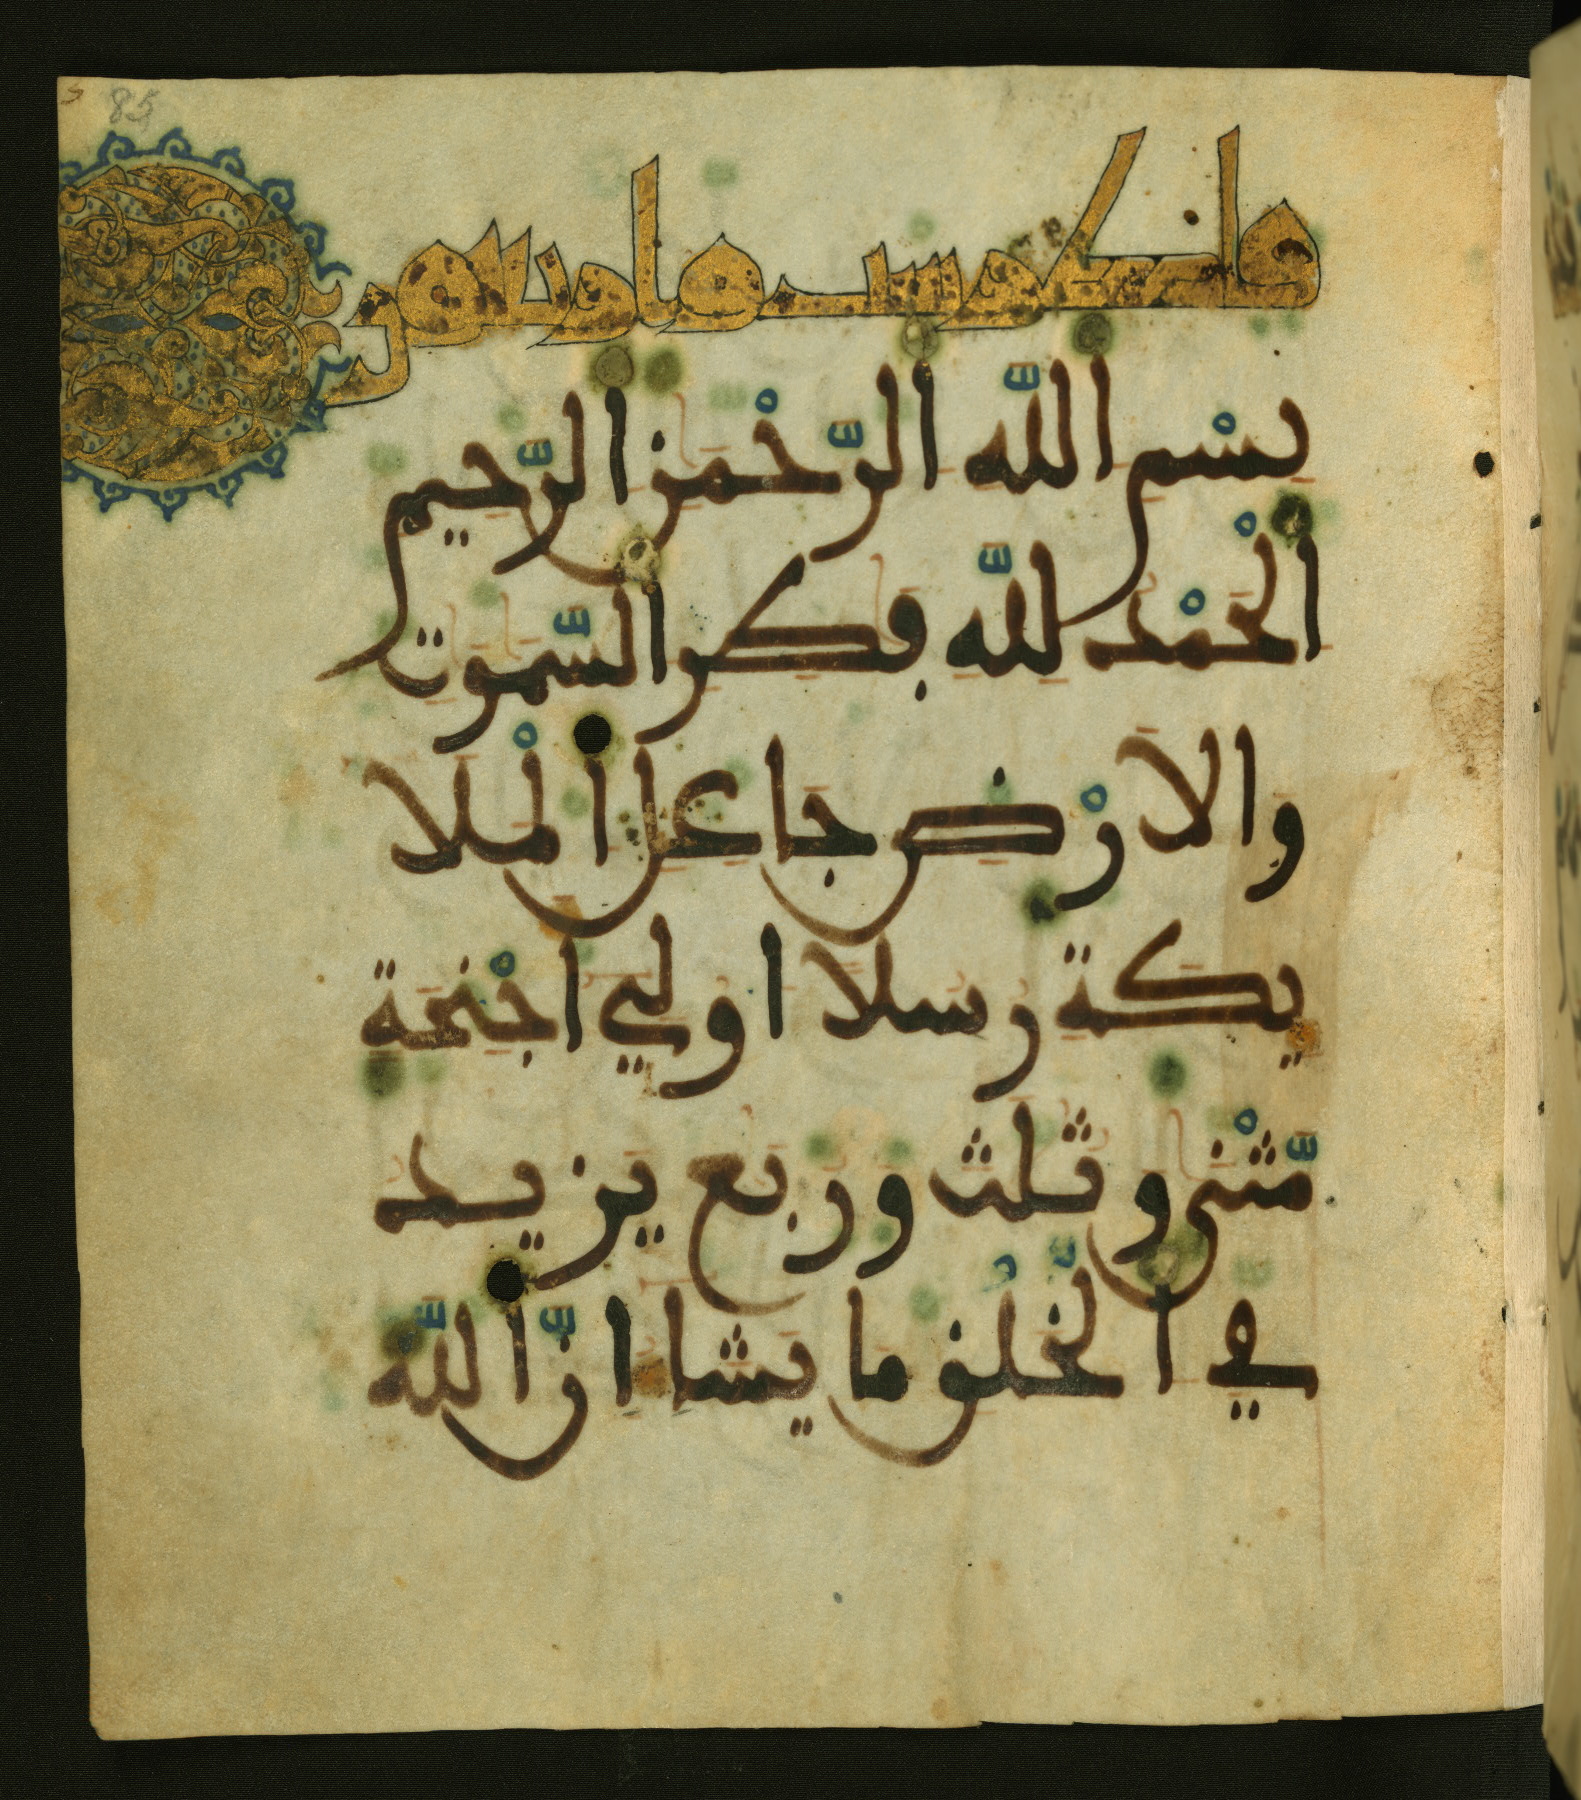 85
بسْم اللّه الرّحْمن الرّحيم
الْحمْد للّه فطر السّموت
والارْض جاعل الْملا
يكة رسلا اولي اجْنحة
مّثْنى وثلث وربع يزيد
في الْخلْق ما يشا انّ اللّه